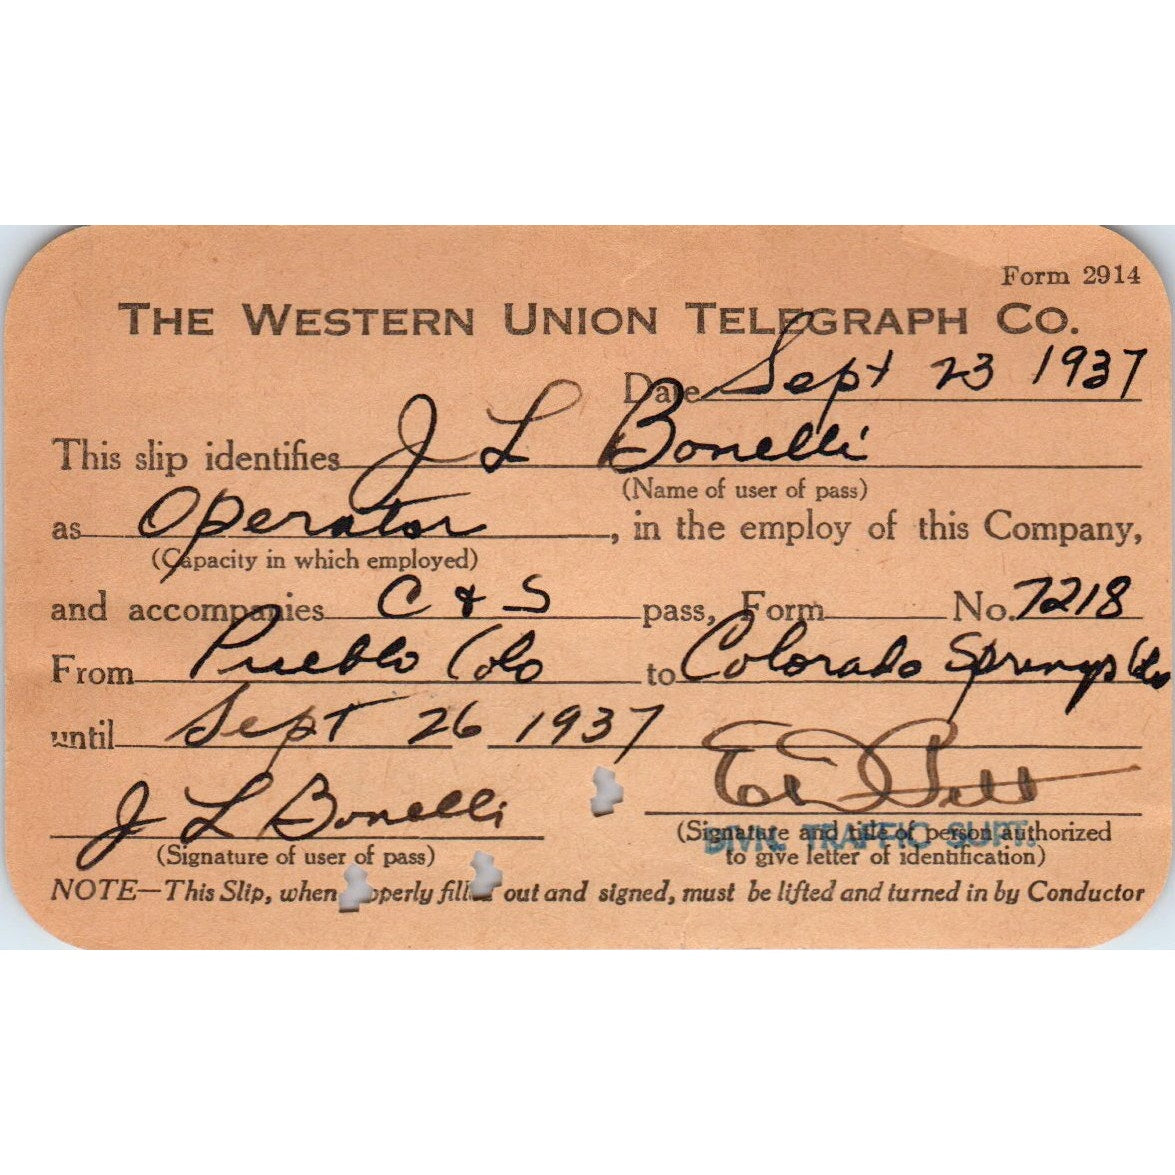 Form 2914
THE WESTERN UNION TELEGRAPH CO.
Date Sept 23 1937
This slip identifies J L Bonelli
(Name of user of pass)
as Operator, in the employ of this Company,
(Capacity in which employed)
and accompanies C & S pass, Form No. 7218
From Pueblo Colo to Colorado Springs Colo
until Sept 26 1937
J L Bonelli
(Signature of user of pass)
(Signature and title of person authorized
to give letter of identification)
DIVN. TRAFFIC SUPT.
NOTE—This Slip, when properly filled out and signed, must be lifted and turned in by Conductor